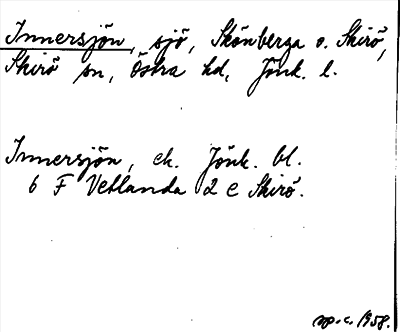 Innersjön, sjö, Skönberga o. Skirö,
Skirö sn, Östra hd, Jönk. l.
Innersjön, ek. Jönk. bl.
6 F Vetlanda 2 e Skirö.
op. c. 1958.